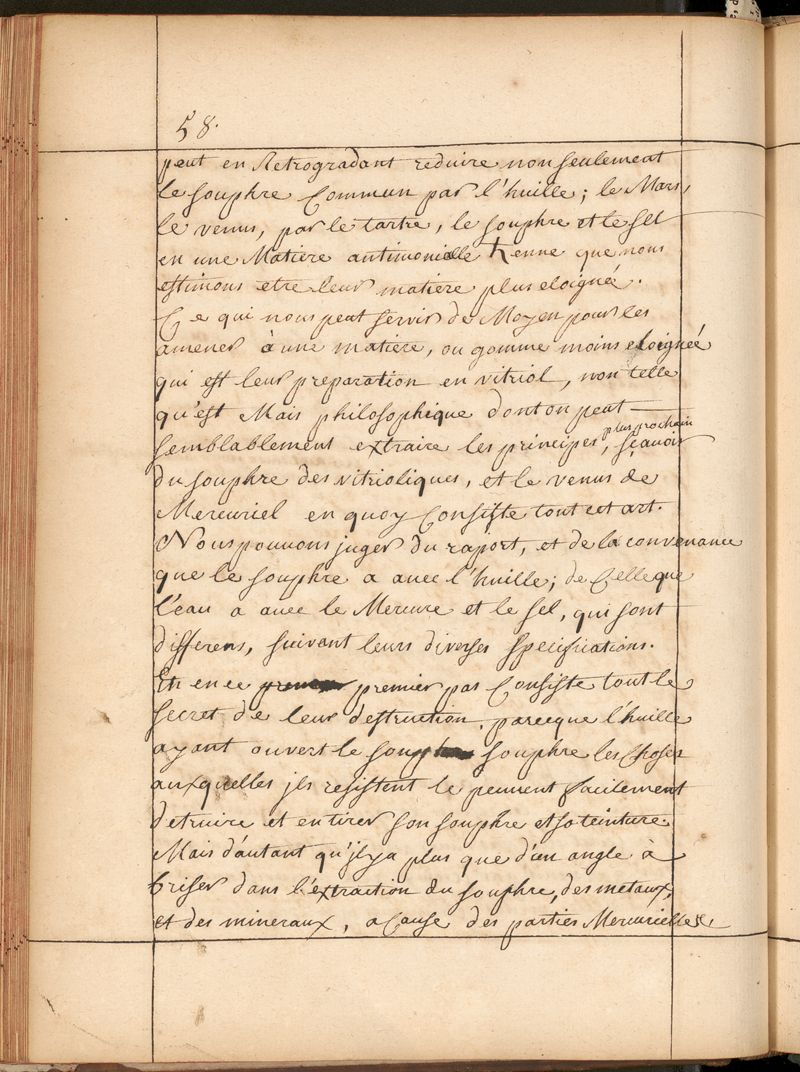 58.
peut en Retrogradant reduire non seulement
le souphre Commun par l'huille; le Mars,
le venus, par le tartre, le souphre et le sel
en une Matiere antimonialle ♄enne que nous
estimons etre leur matiere plus eloignée.
Ce qui nous peut servir de Moyen pour les
amener à une matiere, ou gomme moins eloignée
qui est leur preparation en vitriol, non telle
qu'est Mais philosophique dont on peut
semblablement extraire les principes, plus prochain sçavoir
du souphre des vitrioliques, et le venus de
Mercuriel en quoy Consiste tout cet art.
Nous pouvons juger du raport, et de la convenance
que le souphre a avec l'huille; de Celle que
l'eau a avec le Mercure et le sel, qui sont
differens, suivant leurs diverses specifications.
Et en ce premier pas Consiste tout le
secret de leur destruction, parceque l'huille
ayant ouvert le souphre les Choses
auxquelles jls resistent le peuvent facilement
detruire et en tirer son souphre et sa teinture.
Mais d'autant qu'jl y a plus que d'un angle à
briser dans l'extraction du souphre, des metaux,
et des mineraux, a Cause des parties Mercurielles,